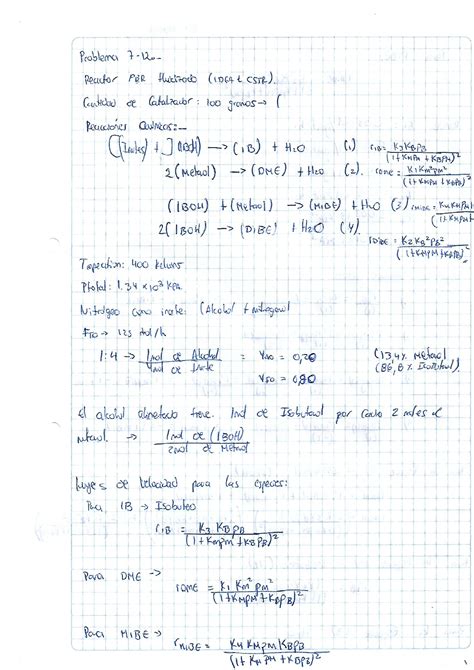 Problema 7-12.-
Reactor PBR fluidizado (IDEAL CSTR).
Cantidad de Catalizador: 100 gramos →
Reacciones Químicas:-
[(Inertes) + ] (IBOH) → (IB) + H2O (1) rIB = K3KBPB / (1+KMPM + KBPB)²
2(Metanol) → (DME) + H2O (2). rDME = K1KM²PM² / (1+KMPM + KBPB)²
(IBOH) + (Metanol) → (MIBE) + H2O (3) rMIBE = K4KMPM / (1+KMPM
2(IBOH) → (DIBE) + H2O (4).
rDIBE = K2KB²PB² / (1+KMPM+KBPB)²
Temperatura: 400 Kelvins.
Ptotal: 1.34 x10³ kPa.
Nitrógeno como inerte: (Alcohol + nitrógeno)
FTO → 125 mol/h
1:4 → 1mol de Alcohol / 4mol de Inerte = YAO = 0,20 (13,4% Metanol
YIO = 0,80 (86,6% Isobutanol)
El alcohol alimentado tiene. 1mol de Isobutanol por cada 2 moles de
metanol. → 1mol de (IBOH) / 2mol de Metanol
Leyes de Velocidad para las especies:
Para IB → Isobuteno
rIB = K3 KBPB / (1+KMPM+KBPB)²
Para DME →
rDME = K1 KM² PM² / (1+KMPM+KBPB)²
Para MIBE →
rMIBE = K4 KMPM KBPB / (1+KMPM+KBPB)²